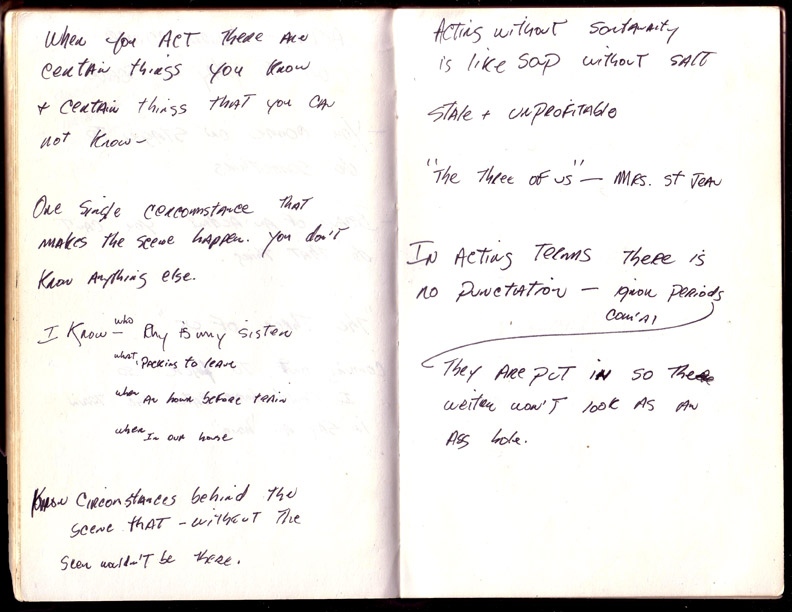 When you ACT there are
certain things you know
+ certain things that you can
not know –
One single cercomstance that
makes the scene happen. You don't
know anything else.
I Know – who Rhy is my sister
what, Packing to leave
when An hour before train
when In our house
Know circomstances behind the
scene that – without the
seen wouldn't be there.
Acting without
is like soap without salt
Stale + unprofitable
"The three of us" – Mrs. St Jean
In Acting terms there is
no punctation – ignor periods
coma's
They are put in so the
writer won't look as an
Ass hole.